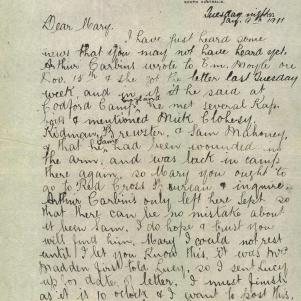 SOUTH AUSTRALIA.
Tuesday night
Jan. 1911
Dear Mary.
I have just heard some
news that you may not have heard yet.
Arthur Carbins wrote to Em Moyle on
Nov. 15th & she got the letter last Tuesday
week, and in it he said at
Codford Camp England he met several Kap.
boys & mentioned Mick Clohesy,
Redman, Brewster, & Sam Mahoney,
& that he Sam had been wounded in
the arm, and was back in camp
there again, so Mary you ought to
go to Red Cross Bureau & inquire.
Arthur Carbins only left here Sept so
that there can be no mistake about
it been Sam. I do hope & trust you
will find him. Mary I could not rest
until I let you know this, it was Mrs
Madden first told Lucy, so I sent Lucy
up for date of letter. I must finish
as it is 10 oclock & I want to post this,